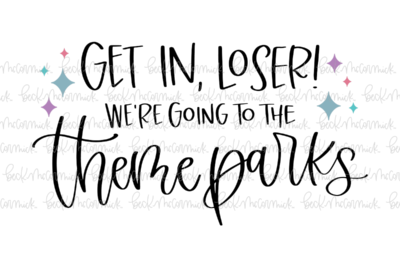 GET IN, LOSER!
WE'RE GOING TO THE
theme parks